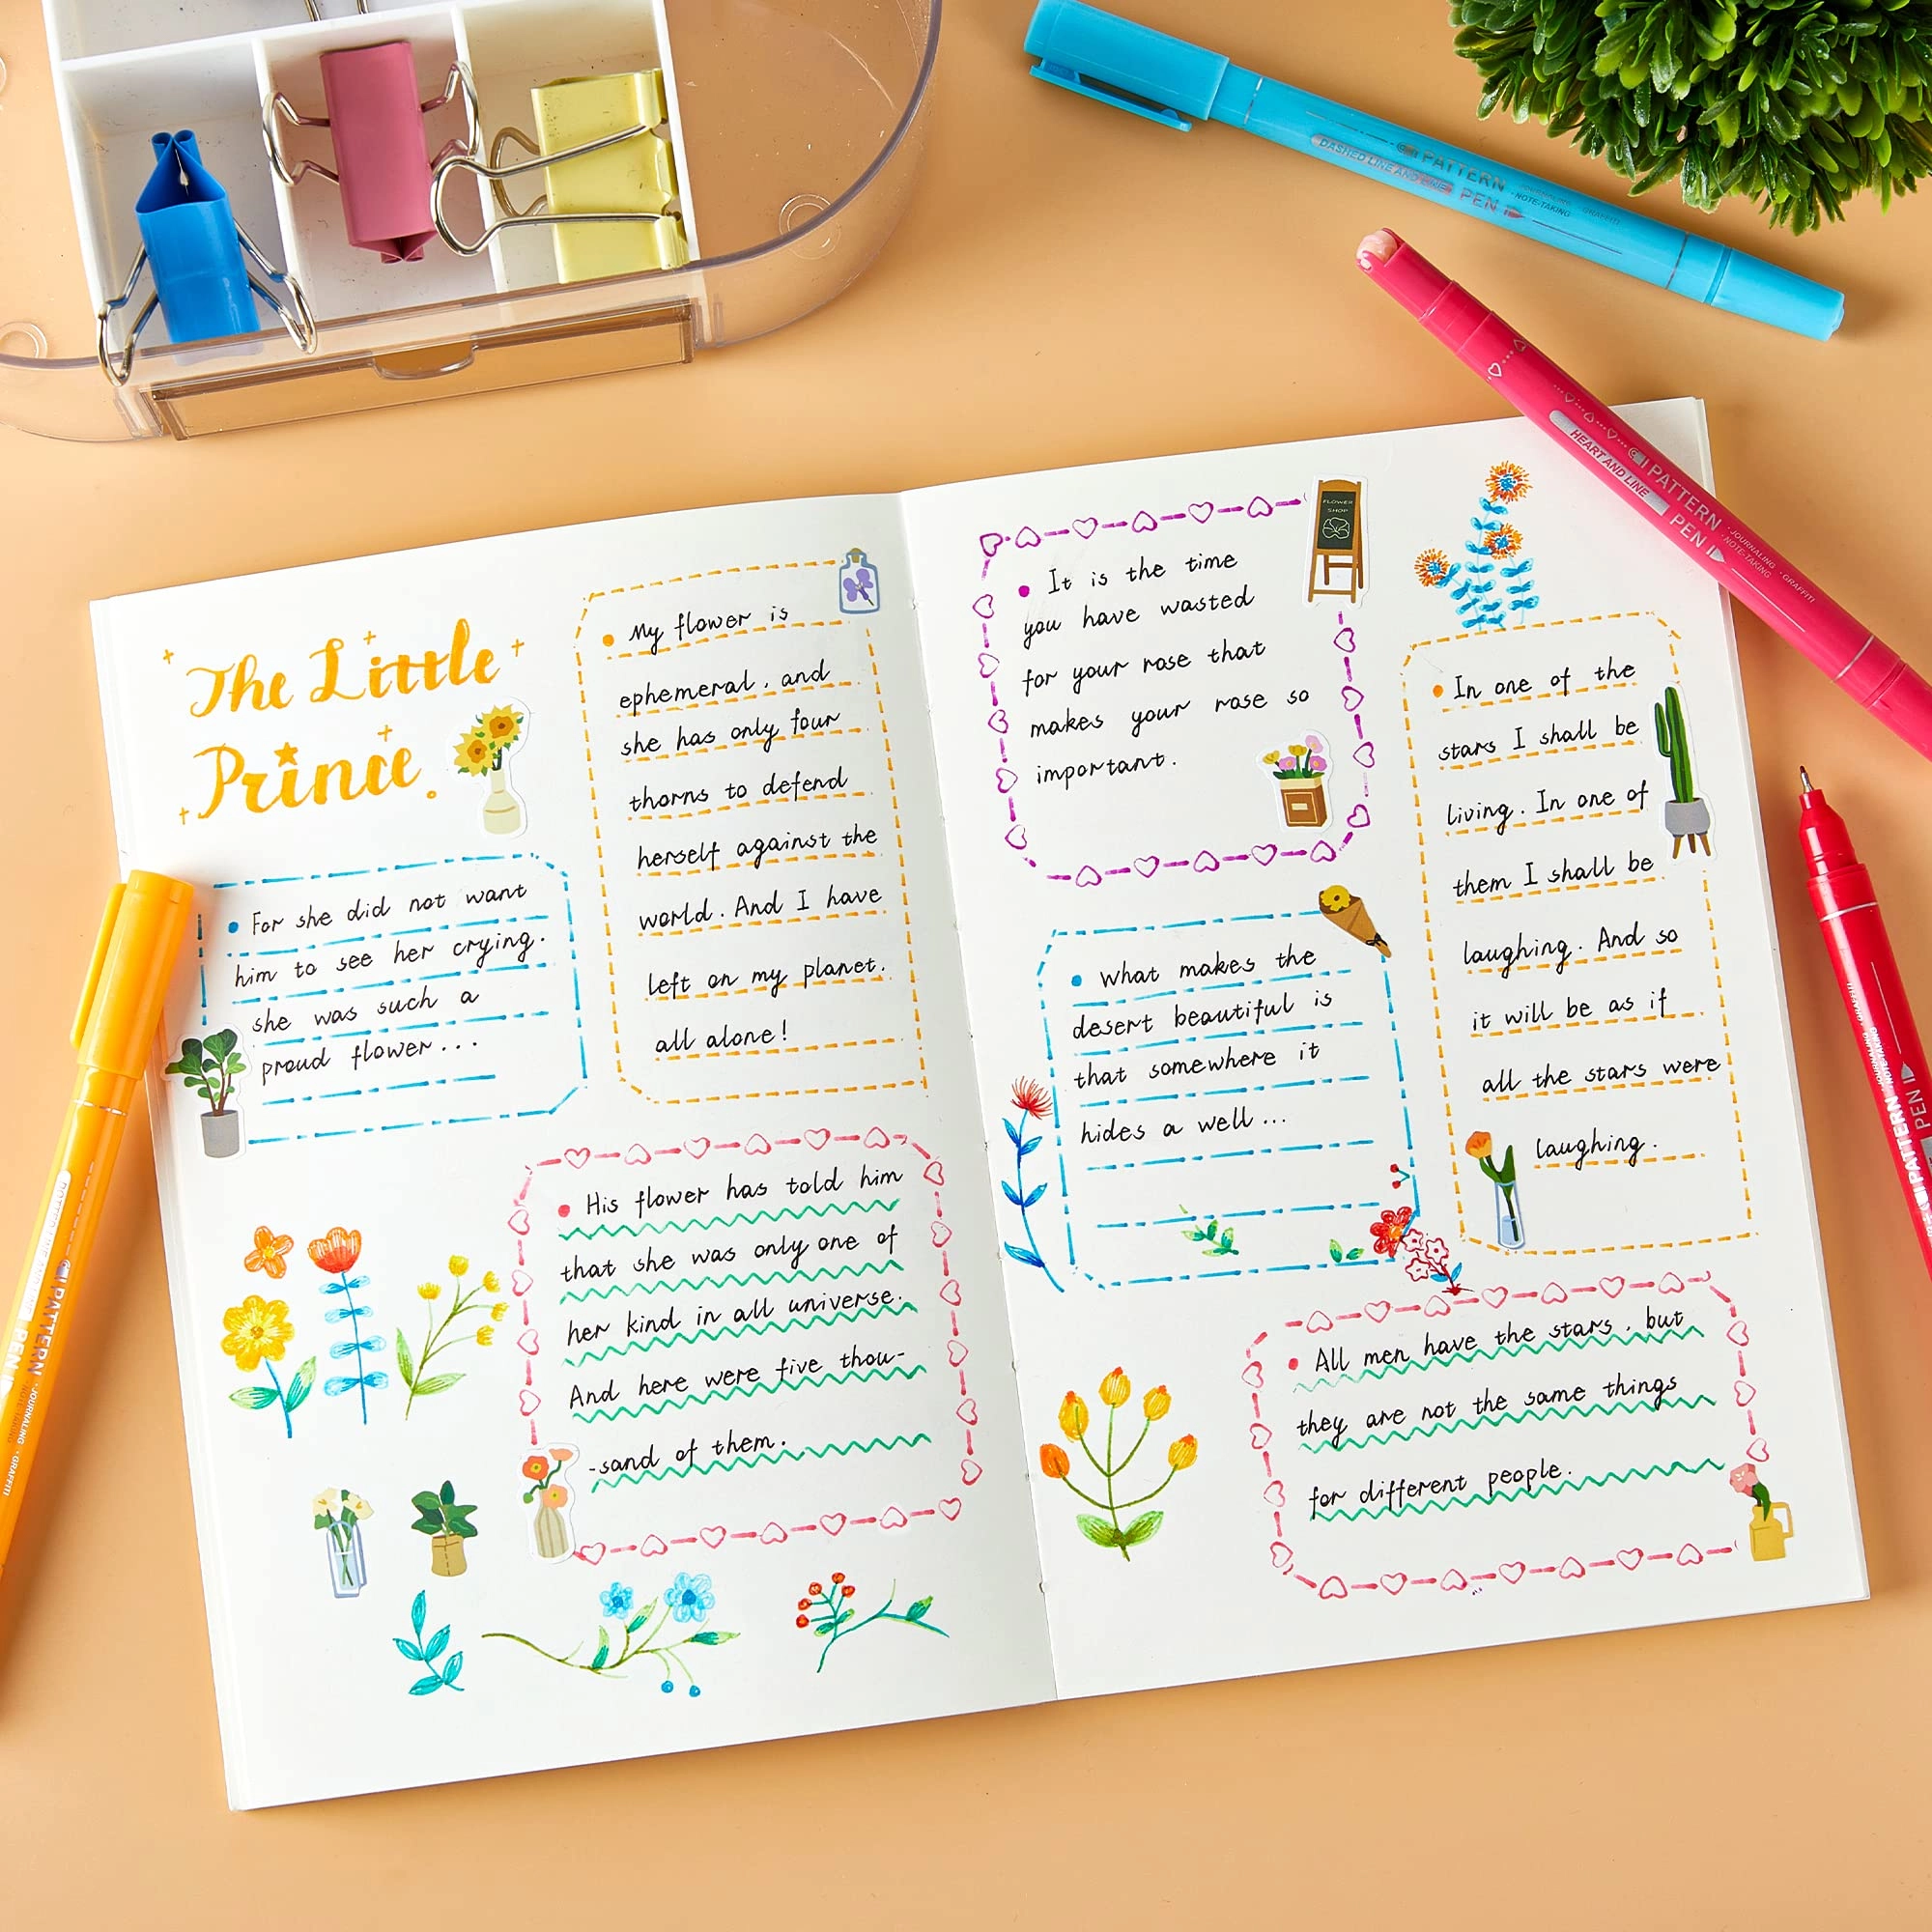 The Little
Prince.
For she did not want
him to see her crying.
she was such a
proud flower...
My flower is
ephemeral, and
she has only four
thorns to defend
herself against the
world. And I have
left on my planet.
all alone!
His flower has told him
that she was only one of
her kind in all universe.
And here were five thou-
-sand of them.
It is the time
you have wasted
for your rose that
makes your rose so
important.
FLOWER
SHOP
what makes the
desert beautiful is
that somewhere it
hides a well...
In one of the
stars I shall be
living. In one of
them I shall be
laughing. And so
it will be as if
all the stars were
laughing.
All men have the stars, but
they are not the same things
for different people.
PATTERN
PEN
DASHED LINE AND LINE
NOTE-TAKING
GRAFFITI
PATTERN
PEN
HEART AND LINE
·JOURNALING ·GRAFFITI
·NOTE-TAKING
PATTERN
PEN
·JOURNALING ·GRAFFITI
PATTERN
PEN